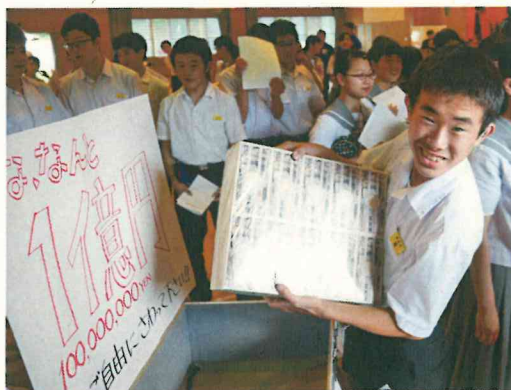 な、なんと
1億円
100,000,000 YEN
ご自由にさわってください!!